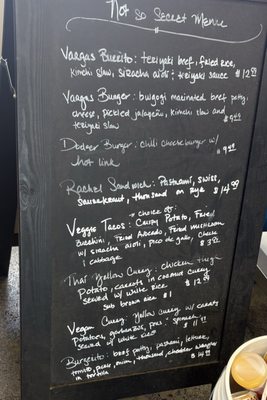 Not So Secret Menu
Vargas Burrito: teriyaki beef, fried rice,
Kimchi slaw, siracha aioli & teriyaki sauce $12.99
Vargas Burger: bulgogi marinated beef patty,
cheese, pickled jalapeño, kimchi slaw and
teriyaki slaw $9.99
Dodger Burger: chilli cheeseburger w/
hot link $9.99
Rachel Sandwich: Pastrami, swiss,
saurkraut, thousand on rye $14.99
choice of:
Veggie Tacos: Crispy Potato, Fried
Zucchini, Fried Avocado, Fried mushroom
w/ siracha aioli, pico de gallo, cheese
& cabbage
Thai Yellow Curry: chicken thigh
Potato, carrots in coconut curry
served w/ white rice $12.99
sub brown rice $1
Vegan Curry: Yellow curry w/ carrots
Potatoes, garbanzos, peas, spinach
served w/ white rice $11.99
Burgerito: beef patty, pastrami, lettuce,
tomato, onion, thousand, cheddar
in tortilla $14.99